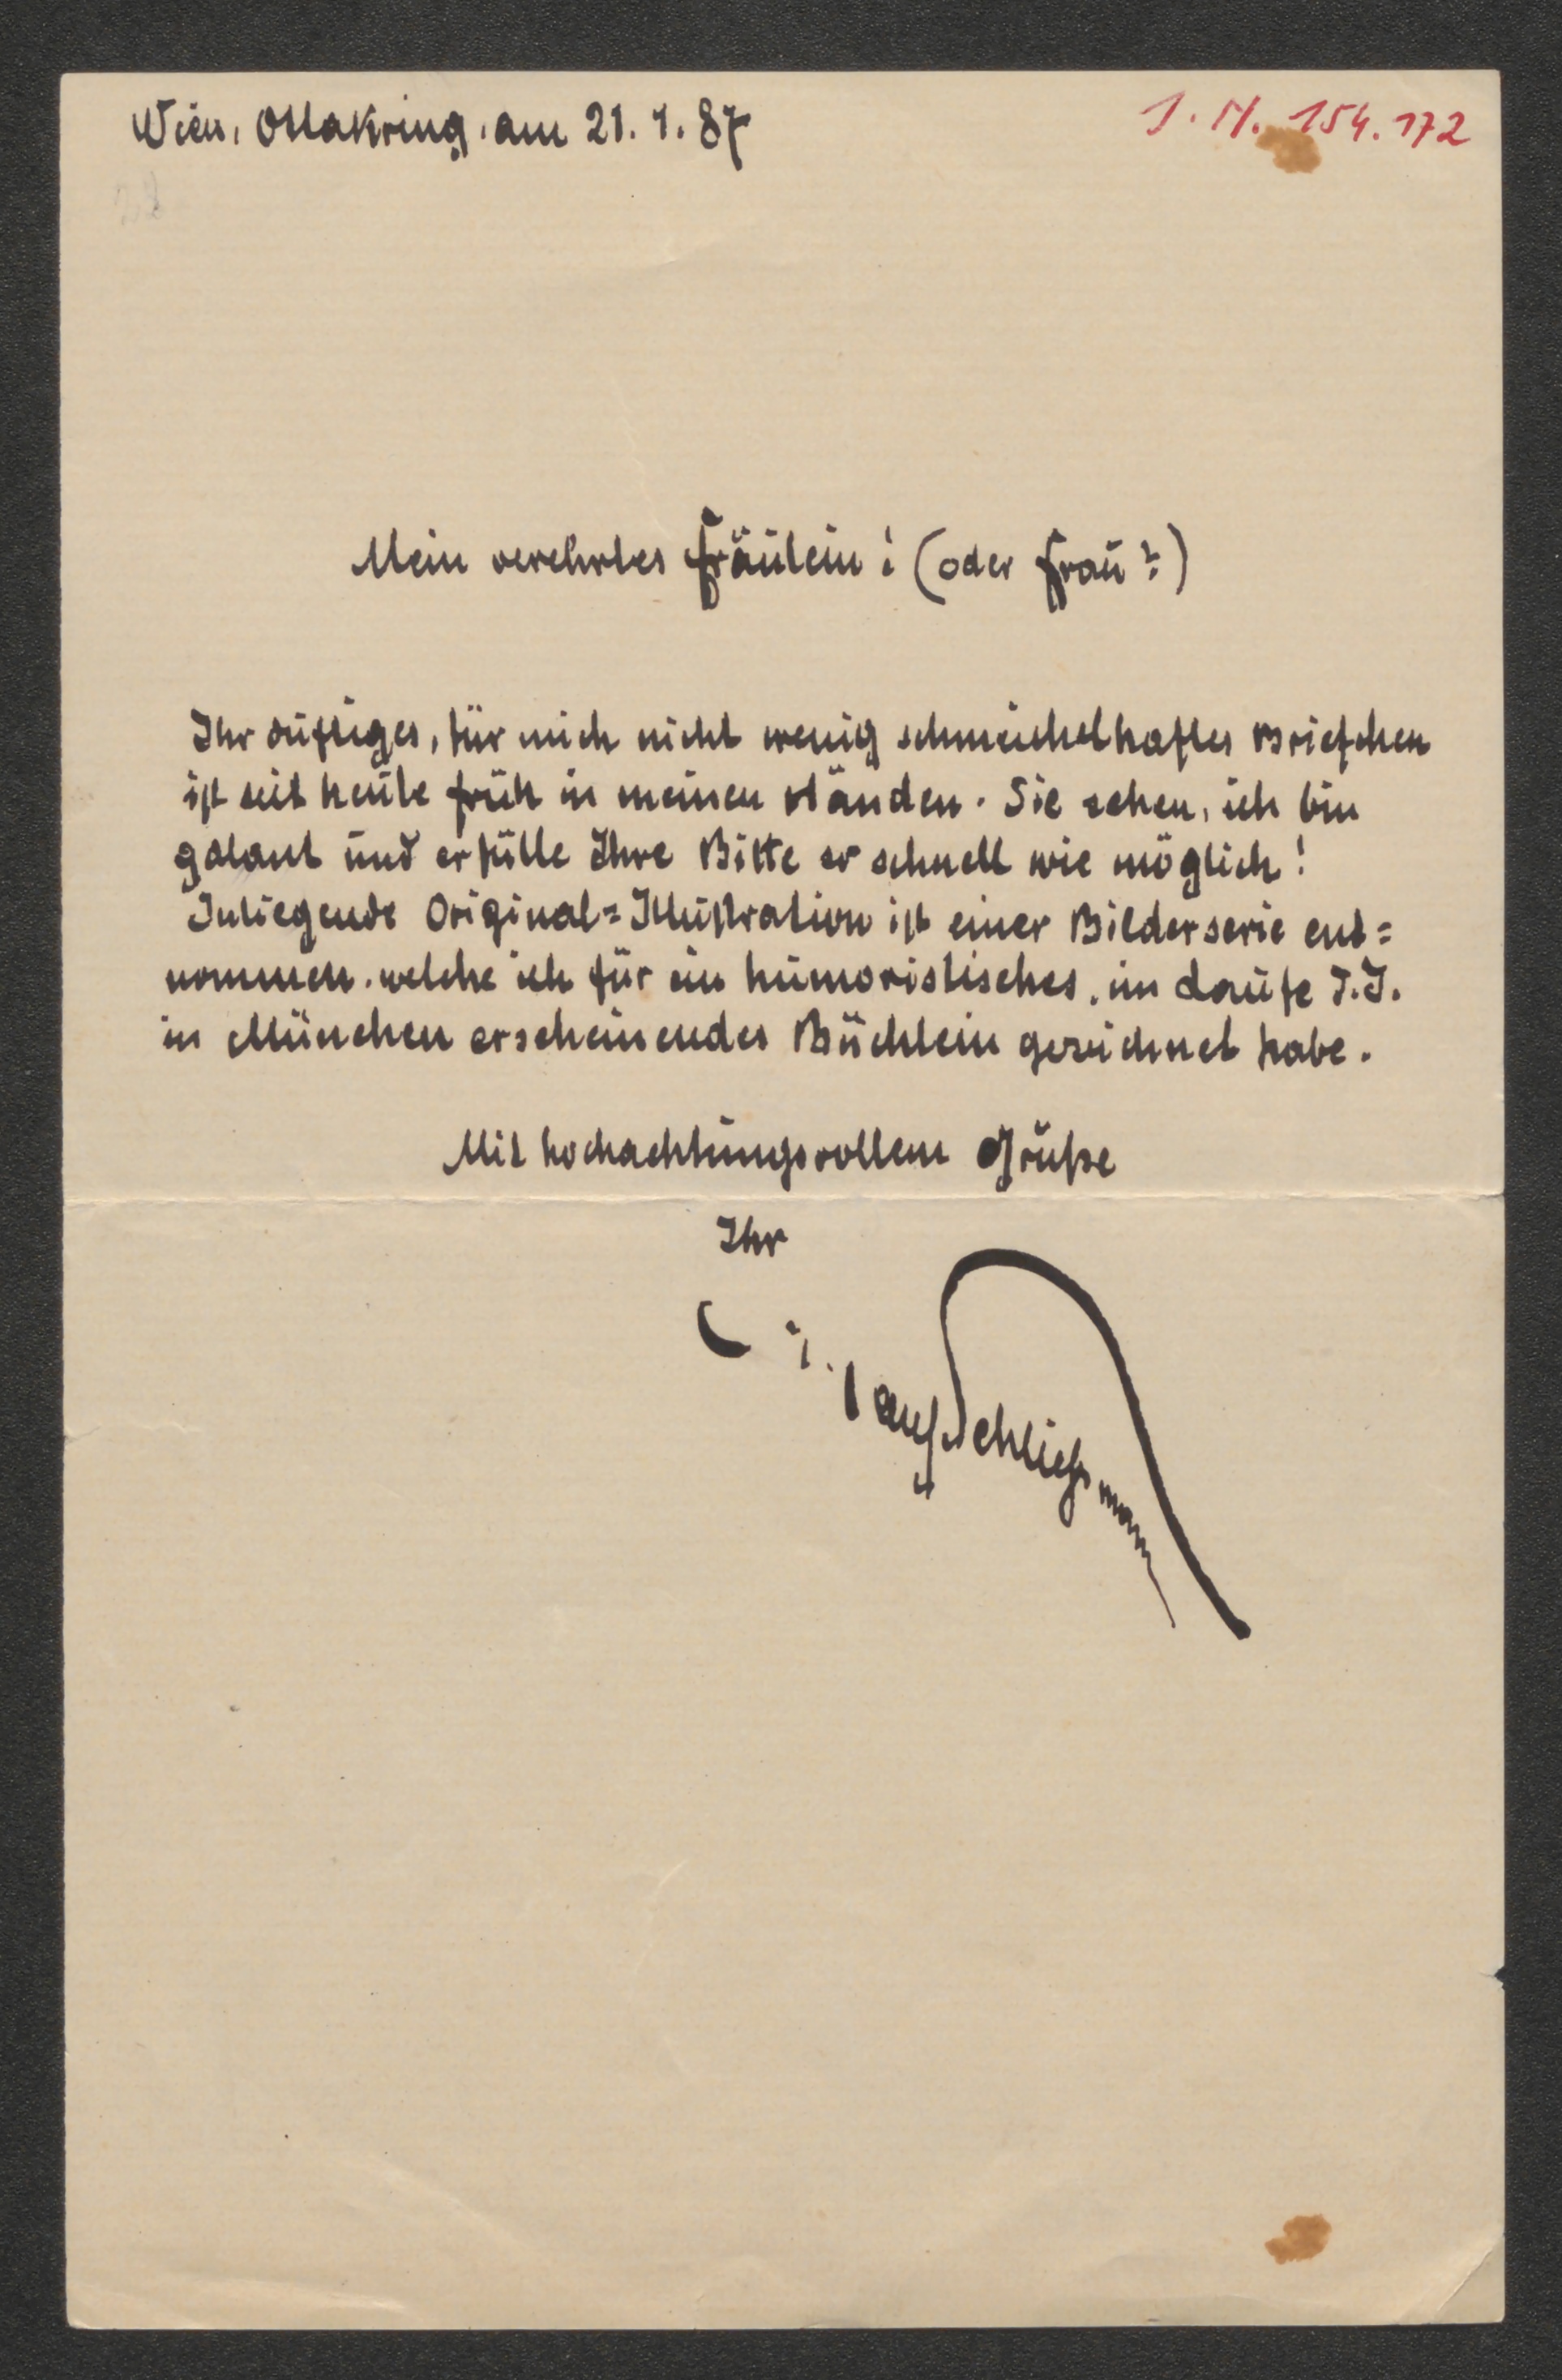 Wien, Ottakring, am 21. 1. 87
I. N. 154.172
Mein verehrtes Fräulein! (oder Frau?)
Ihr duftiges, für mich nicht wenig schmeichelhaftes Briefchen
ist seit heute früh in meinen Händen. Sie sehen, ich bin
galant und erfülle Ihre Bitte so schnell wie möglich!
Inliegende Original=Illustration ist einer Bilderserie ent=
nommen, welche ich für ein humoristisches, im Laufe d. J.
in München erscheinendes Büchlein gezeichnet habe.
Mit hochachtungsvollem Gruße
Ihr
Schließmann